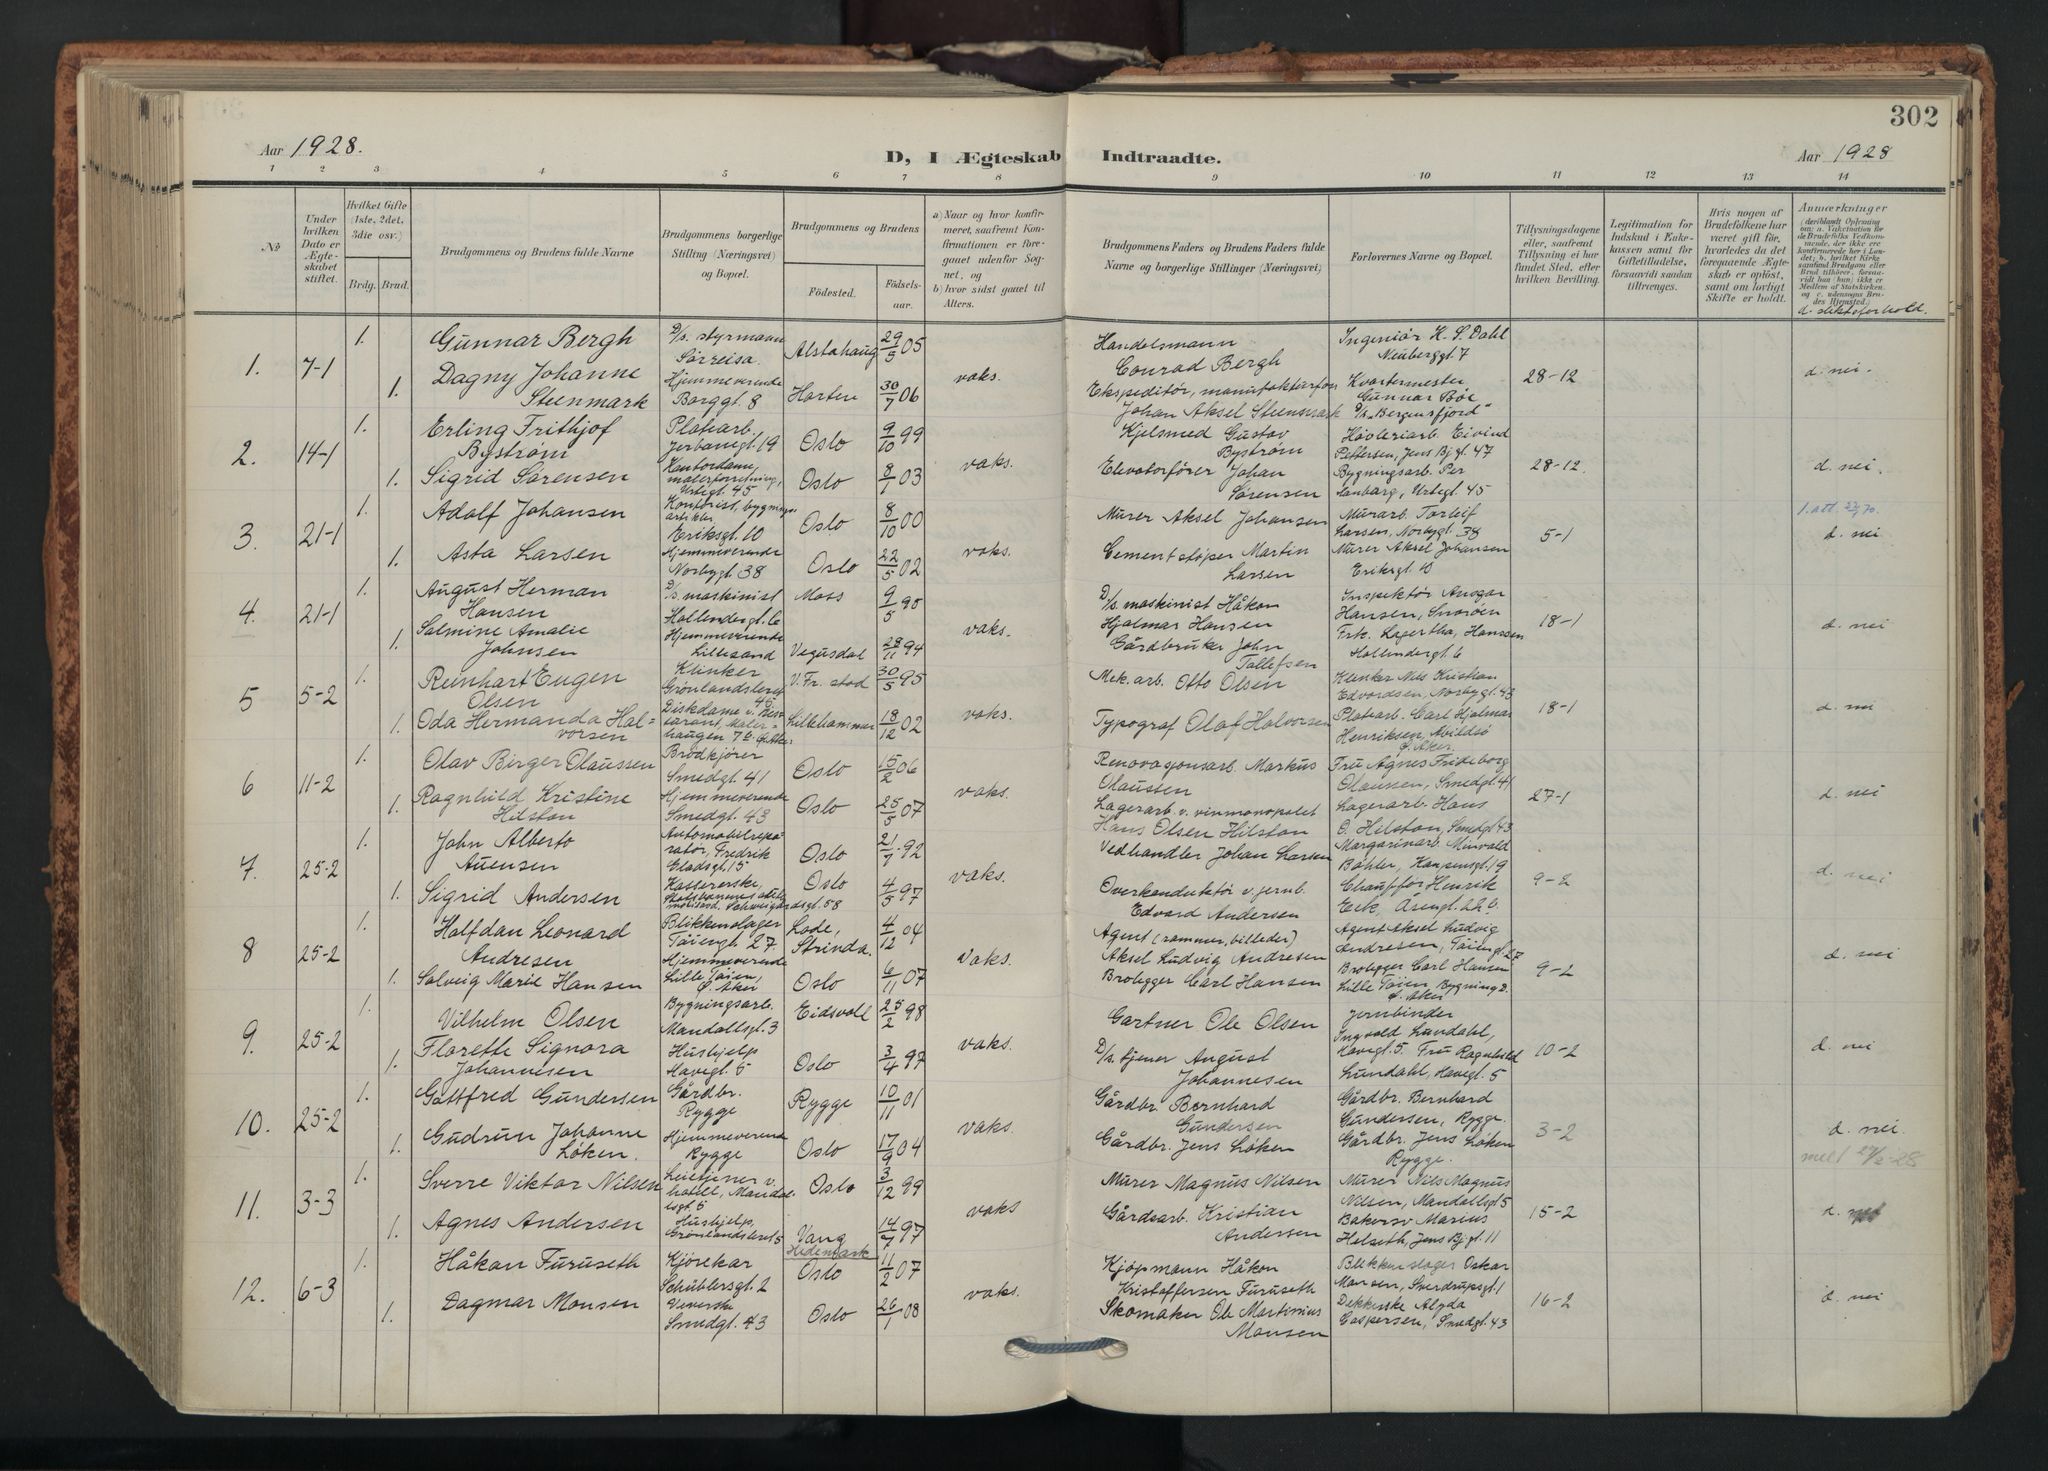 302
Aar 1928.
D, I Ægteskab Indtraadte.
Aar 1928
1 2 3 4 5 6 7 8 9 10 11 12 13 14
No
Under hvilken Dato er Ægteskabet stiftet.
Hvilket Gifte (1ste, 2det, 3die osv.)
Brdg. Brud.
Brudgommens og Brudens fulde Navne
Brudgommens borgerlige Stilling (Næringsvei) og Bopæl.
Brudgommens og Brudens
Fødested.
Fødselsaar.
a) Naar og hvor konfirmeret, saafremt Konfirmationen er foregaaet udenfor Sognet, og
b) hvor sidst gaaet til Alters.
Brudgommens Faders og Brudens Faders fulde Navne og borgerlige Stillinger (Næringsvei)
Forlovernes Navne og Bopæl.
Tillysningsdagene eller, saafremt Tillysning ei har fundet Sted, efter hvilken Bevilling.
Legitimation for Indskud i Enkekassen samt for Giftetilladelse, forsaavidt saadan tiltrænges.
Hvis nogen af Brudefolkene har været gift før, hvorledes da det foregaaende Ægteskab er opløst, samt om lovligt Skifte er holdt.
Anmærkninger
d. slektsforhold.
1. 7-1
1. Gunnar Bergh D/s. styrmann Sørreisa Alstahaug 29/5 05
Handelsmann Conrad Bergh
Ingeniør K. S. Dahl Neuberggt. 7
1. Dagny Johanne Steenmark Hjemmeverende Borggt. 8 Horten 30/7 06 vaks.
Ekspeditør, manufakturforr. Johan Aksel Steenmark
Kvartermester Gunnar Bøe D/s "Bergensfjord"
28-12 d. nei.
2. 14-1
1. Erling Frithjof Bystrøm Platearb. Jerbanegt. 19 Oslo 9/10 99
Kjelsmed Gustav Bystrøm
Høvleriarb. Eivind Pettersen, Jens Bj. gt. 47
1. Sigrid Sørensen Kontordame, malerforretning, Urtegt. 45 Oslo 8/1 03 vaks.
Elevatorfører Johan Sørensen
Bygningsarb. Per Sanberg, Urtegt. 45
28-12. d. nei.
3. 21-1
1. Adolf Johansen Kontorist, bygningsartikler Eriksgt. 10 Oslo 8/10 00
Murer Aksel Johansen
Murarb. Torleif Larsen, Norbygt. 38
1. att. 22/1 70.
1. Asta Larsen Hjemmeverende Norbygt. 38 Oslo 22/5 02 vaks.
Cementstøper Martin Larsen
Murer Aksel Johansen Eriksgt. 10
5-1 d. nei
4. 21-1
1. August Herman Hansen D/s. maskinist Hollendergt. 6 Moss 9/5 90
D/s. maskinist Håkon Hjalmar Hansen
Inspektør Ansgar Hansen, Snarøen
1. Salmine Amalie Johnsen Hjemmeverende Lillesand Vegusdal 28/11 94 vaks.
Gårdbruker John Tollefsen
Frk. Lagertha Hanssen Hollendergt. 6
18-1 d. nei
5 5-2
1. Reinhart Eugen Olsen Klinker Grønlandsleret 46 V. Fr. stad 30/5 95
Mek. arb. Otto Olsen
Klinker Nils Kristian Edvardsen, Norbygt. 43
1. Oda Hermanda Halvorsen Diskdame v. restaurant, Malerhaugen 7b. Ø. Aker Lillehammer 18/12 02 vaks.
Typograf Olaf Halvorsen
Platearb. Carl Hjalmar Henriksen, Abildsø Ø. Aker.
18-1 d. nei
6 11-2
1. Olav Birger Olaussen Brødkjører Smedgt. 41 Oslo 15/2 06
Renovasjonsarb. Markus Olaussen
Fru Agnes Frideborg Olaussen, Smedgt. 41
1. Ragnhild Kristine Hilston Hjemmeverende Smedgt. 43 Oslo 25/5 07 vaks.
Lagerarb. v. vinmonopolet Hans Olsen Hilston
Lagerarb. Hans O. Hilston, Smedgt. 43
27-1 d. nei
7. 25-2
1. John Alberto Auensen Automobilreparatør, Fredrik Gladsgt. 15 Oslo 21/7 92
Vedhandler Johan Larsen
Margarinarb. Minvald Bøhler, Hansensgt. 9
1. Sigrid Andersen Kassererske, Schweigårdsgt. 58 Oslo 4/5 97 vaks.
Overkonduktør v. jernb. Edvard Andersen
Chauffør Henrik Eek, Åsengt. 22b
9-2 d. nei
8 25-2
1. Halfdan Leonard Andresen Blikkenslager Tøiengt. 27. Lade, Strinda. 4/12 04
Agent (rammer, billeder) Aksel Ludvig Andresen
Agent Aksel Ludvig Andresen, Tøiengt. 27
1. Solveig Marie Hansen Hjemmeverende Lille Tøien, Ø. Aker Oslo 6/11 07 vaks.
Brolegger Carl Hansen
Brolegger Carl Hansen Lille Tøien Bygning 2. Ø. Aker
9-2 d. nei
9. 25-2
1. Vilhelm Olsen Bygningsarb. Mandallsgt. 3 Eidsvoll 25/2 98
Gartner Ole Olsen
Jernbinder Ingvald Lundahl, Havegt. 5.
1. Florette Signora Johannesen Hushjelp Havegt. 5 Oslo 3/4 97 vaks.
D/s. tjener August Johannesen
Fru Ragnhild Lundahl, Havegt. 5
10-2 d. nei
10. 25-2
1. Gottfred Gundersen Gårdbr. Rygge Rygge 10/11 01
Gårdbr. Bernhard Gundersen
Gårdbr. Bernhard Gundersen, Rygge.
1. Gudrun Johanne Løken. Hjemmeverende Rygge Oslo 17/9 04 vaks.
Gårdbr. Jens Løken
Gårdbr. Jens Løken Rygge.
3-2 d. nei.
melt 27/2-28
11. 3-3
1. Sverre Viktor Nilsen hotell, Mandalsgt. 5 Oslo 3/12 99
Murer Magnus Nilsen
Murer Nils Magnus Nilsen, Mandallsgt. 5
1. Agnes Andersen Hushjelp, Grønlandsleret 5 Vang Hedemark 14/7 97 vaks
Gårdsarb. Kristian Andersen
Bakersv. Marius Helseth, Jens Bj. gt. 11
15-2 d. nei
12. 6-3
1. Håkon Furuseth Kjørekar Schüblersgt. 2 Oslo 11/2 07
Kjøpmann Håkon Kristoffersen Furuseth
Blikkenslager Oskar Monsen, Sverdrupsgt. 1
1. Dagmar Monsen Veverske Smedgt. 43 Oslo 26/1 08 vaks.
Skomaker Ole Martinius Monsen
Dekkerske Alyda Caspersen, Smedgt. 43
16-2 d. nei